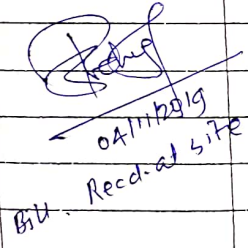 04/11/2019
Bill. Recd. at site